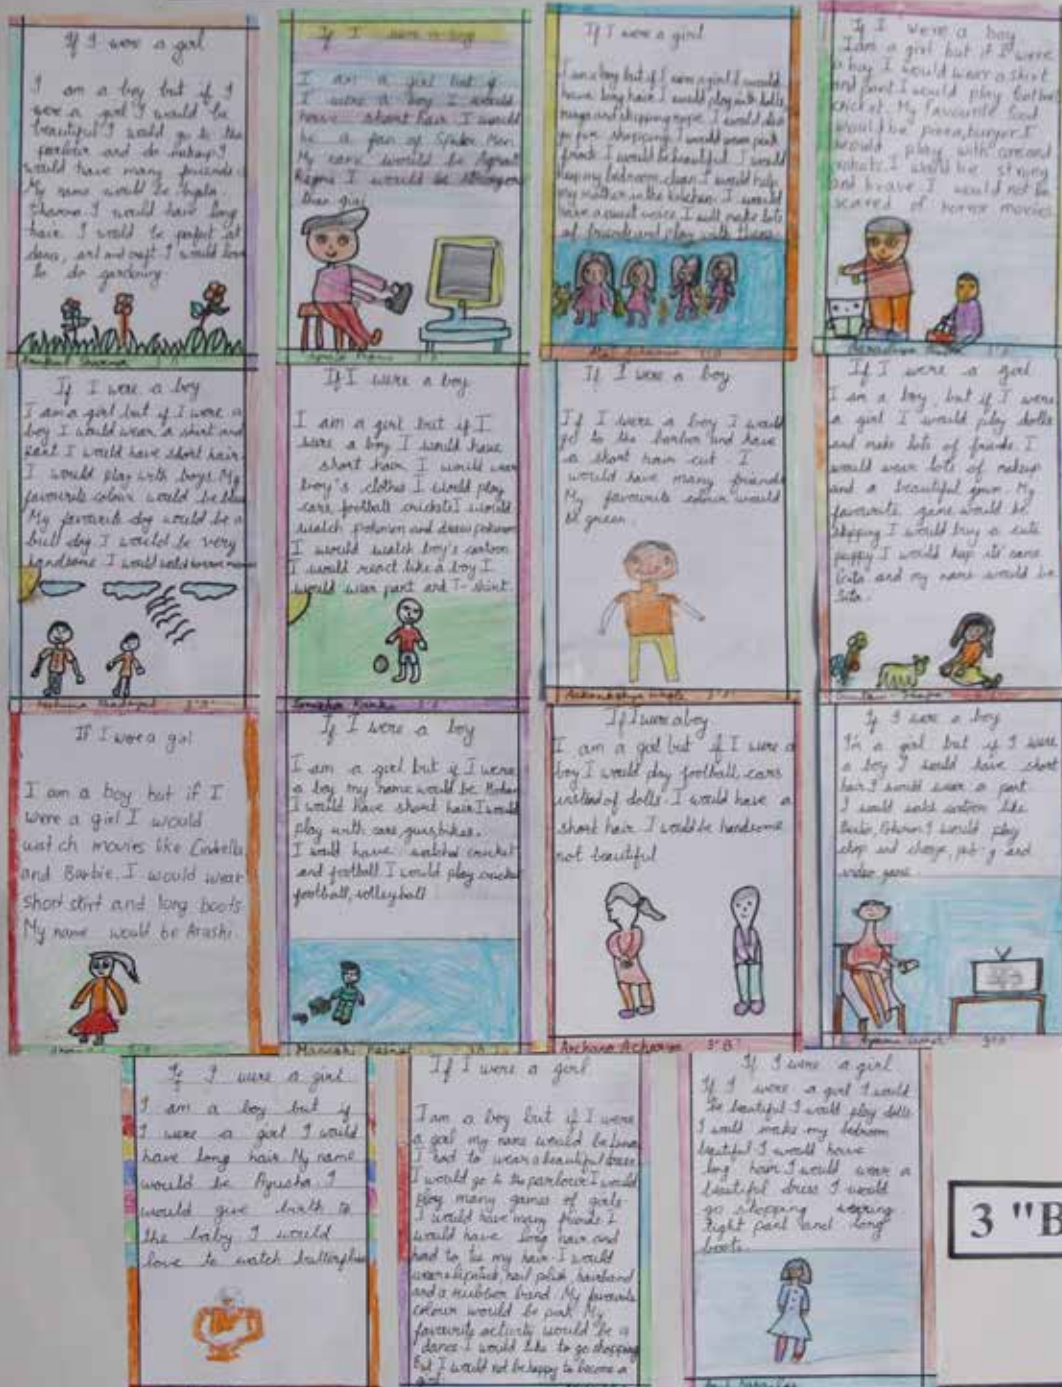 If I were a girl
I am a boy but if I
were a girl I would be
beautiful I would go to the
parlour and do makeup I
would have many friends.
My name would be
Sharma. I would have long
hair. I would be perfect at
dance, art and craft I would love
to do gardening
If I were a boy
I am a girl but if
I were a boy I would
have short hair. I would
be a fan of Spider Man.
My name would be
I would be stronger
than girl
If I were a girl
I am a boy but if I were a girl I would
have long hair I would play with dolls,
and skipping rope. I would also
go for shopping. I would wear pink
frock I would be beautiful I would
keep my bedroom clean I would help
my mother in the kitchen. I would
have a sweet voice, I will make lots
of friends and play with them.
If I were a boy
I am a girl but if I were
a boy I would wear a shirt
and pant I would play
cricket. My favourite food
would be pizza, burger I
would play with
I would be strong
and brave. I would not be
scared of horror movies
If I were a boy
I am a girl but if I were a
boy I would wear a shirt and
pant I would have short hair.
I would play with boys. My
favourite colour would be
My favourite dog would be a
bull dog I would be very
handsome I would
If I were a boy
I am a girl but if I
were a boy I would have
short hair I would wear
boy's clothes I would play
cars, football cricket I would
watch pokmon and draw pokmon
I would watch boy's cartoon
I would react like a boy I
would wear pant and T-shirt.
If I were a boy
If I were a boy I would
go to the barber and have
a short hair cut. I
would have many friends
My favourite colour would
be green.
3"B"
If I were a girl
I am a boy but if I were
a girl I would play dolls
and make lots of friends. I
would wear lots of makeup
and a beautiful gown. My
favourite game would be
skipping I would buy a cute
puppy I would keep its name
Gita and my name would be
Sita.
If I were a girl
I am a boy but if I
were a girl I would
watch movies like Cindrella
and Barbie. I would wear
short skirt and long boots
My name would be Arashi.
If I were a boy
I am a girl but if I were
a boy my name would be
I would have short hair I would
play with cars, guns, bikes.
I would have watched cricket
and football I would play cricket
football, volleyball
If I were a boy
I am a girl but if I were a
boy I would play football, cars
instead of dolls. I would have a
short hair. I would be handsome
not beautiful
Archana Acharya 3"B"
If I were a boy
I'm a girl but if I were
a boy I would have short
hair I would wear a pant
I would watch cartoon like
I would play
pub-g and
video game.
If I were a girl
I am a boy but if
I were a girl I would
have long hair. My name
would be Ayusha. I
would give birth to
the baby I would
love to watch butterflies
If I were a girl
I am a boy but if I were
a girl my name would be
I had to wear a beautiful dress
I would go to the parlour I would
play many games of girls
I would have many friends I
would have long hair and
had to tie my hair. I would
wear lipstick, nail polish, hairband
and a rubber band. My favourite
colour would be pink. My
favourite activity would be a
dance. I would like to go shopping
But I would not be happy to become a
girl.
If I were a girl
If I were a girl I would
be beautiful I would play dolls
I would make my bedroom
beautiful I would have
long hair I would wear a
beautiful dress I would
go shopping wearing
tight pant and long
boots.
3 "B